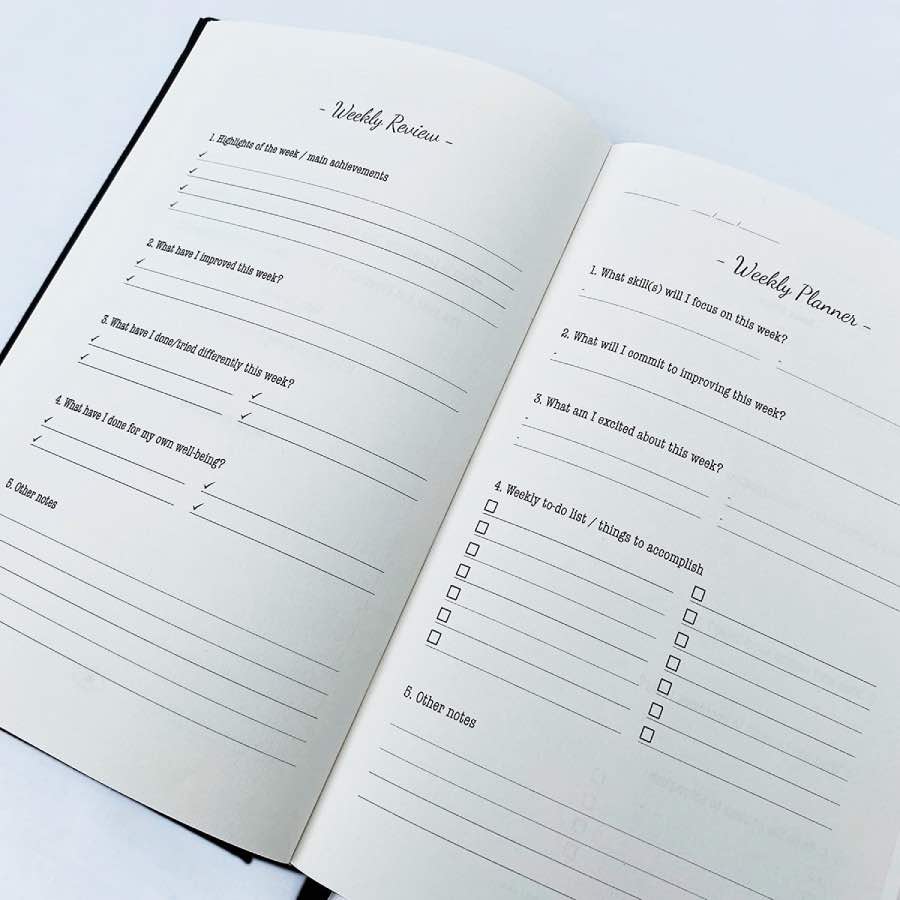 - Weekly Review -
1. Highlights of the week / main achievements
2. What have I improved this week?
3. What have I done/tried differently this week?
4. What have I done for my own well-being?
5. Other notes
- Weekly Planner -
1. What skill(s) will I focus on this week?
2. What will I commit to improving this week?
3. What am I excited about this week?
4. Weekly to-do list / things to accomplish
5. Other notes